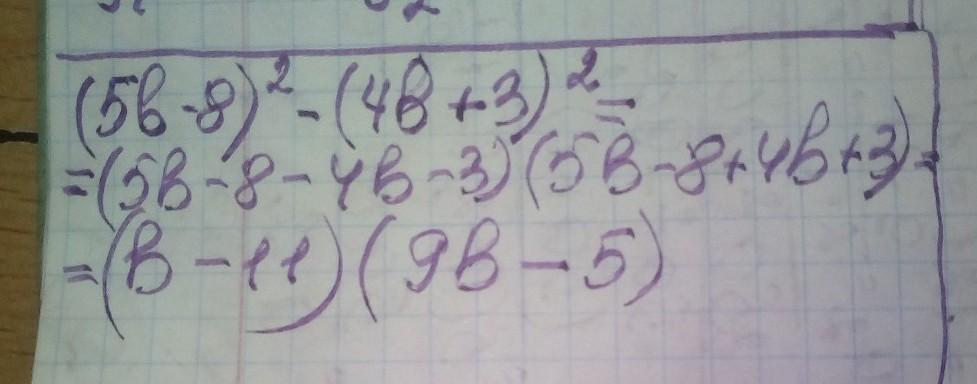 (5b-8)² - (4b+3)² =
=(5b-8-4b-3)(5b-8+4b+3)=
=(b-11)(9b-5)